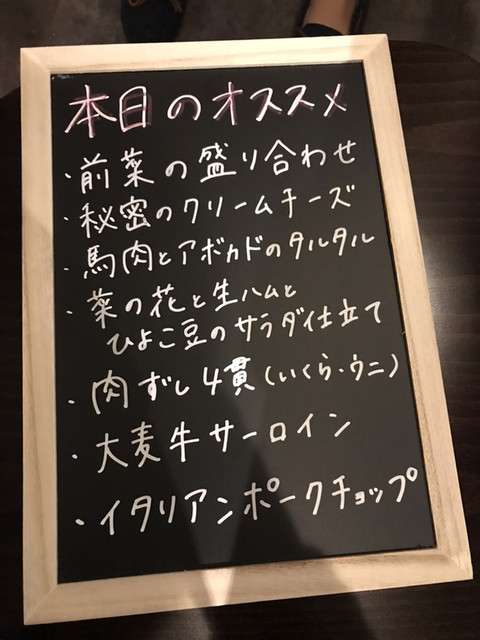 本日のオススメ
・前菜の盛り合わせ
・秘密のクリームチーズ
・馬肉とアボカドのタルタル
・菜の花と生ハムと
ひよこ豆のサラダ仕立て
・肉ずし4貫(いくら・ウニ)
・大麦牛サーロイン
・イタリアンポークチョップ